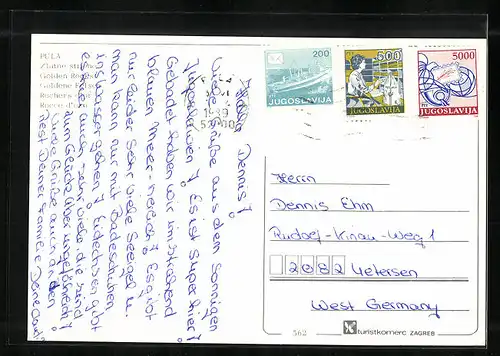 PULA
Zlatne stijene
Golden Rocks
Goldene Felsen
Rochers d'or
Rocce d'oro
Hallo Dennis!
Viele Grüße aus dem Sonnigen
Jugoslawien! Es ist Super hier!
Gebadet haben wir im strahlend
blauen Meer - herrlich! Es gibt
nur leider sehr viele Seeigel u.
man kann nur mit Badeschuhen
ins Wasser gehen! Eidechsen gibt
es hier auch - sehr viele, die sind
zum Glück aber ungefährlich!
Viele Grüße auch an den
Rest Deiner Familie Deine
200
JUGOSLAVIJA
500
JUGOSLAVIJA
5000
JUGOSLAVIJA
PULA
52100
Herrn
Dennis Ehm
Rudolf-Kinau-Weg 1
2082 Uetersen
West Germany
562
turistkomerc ZAGREB